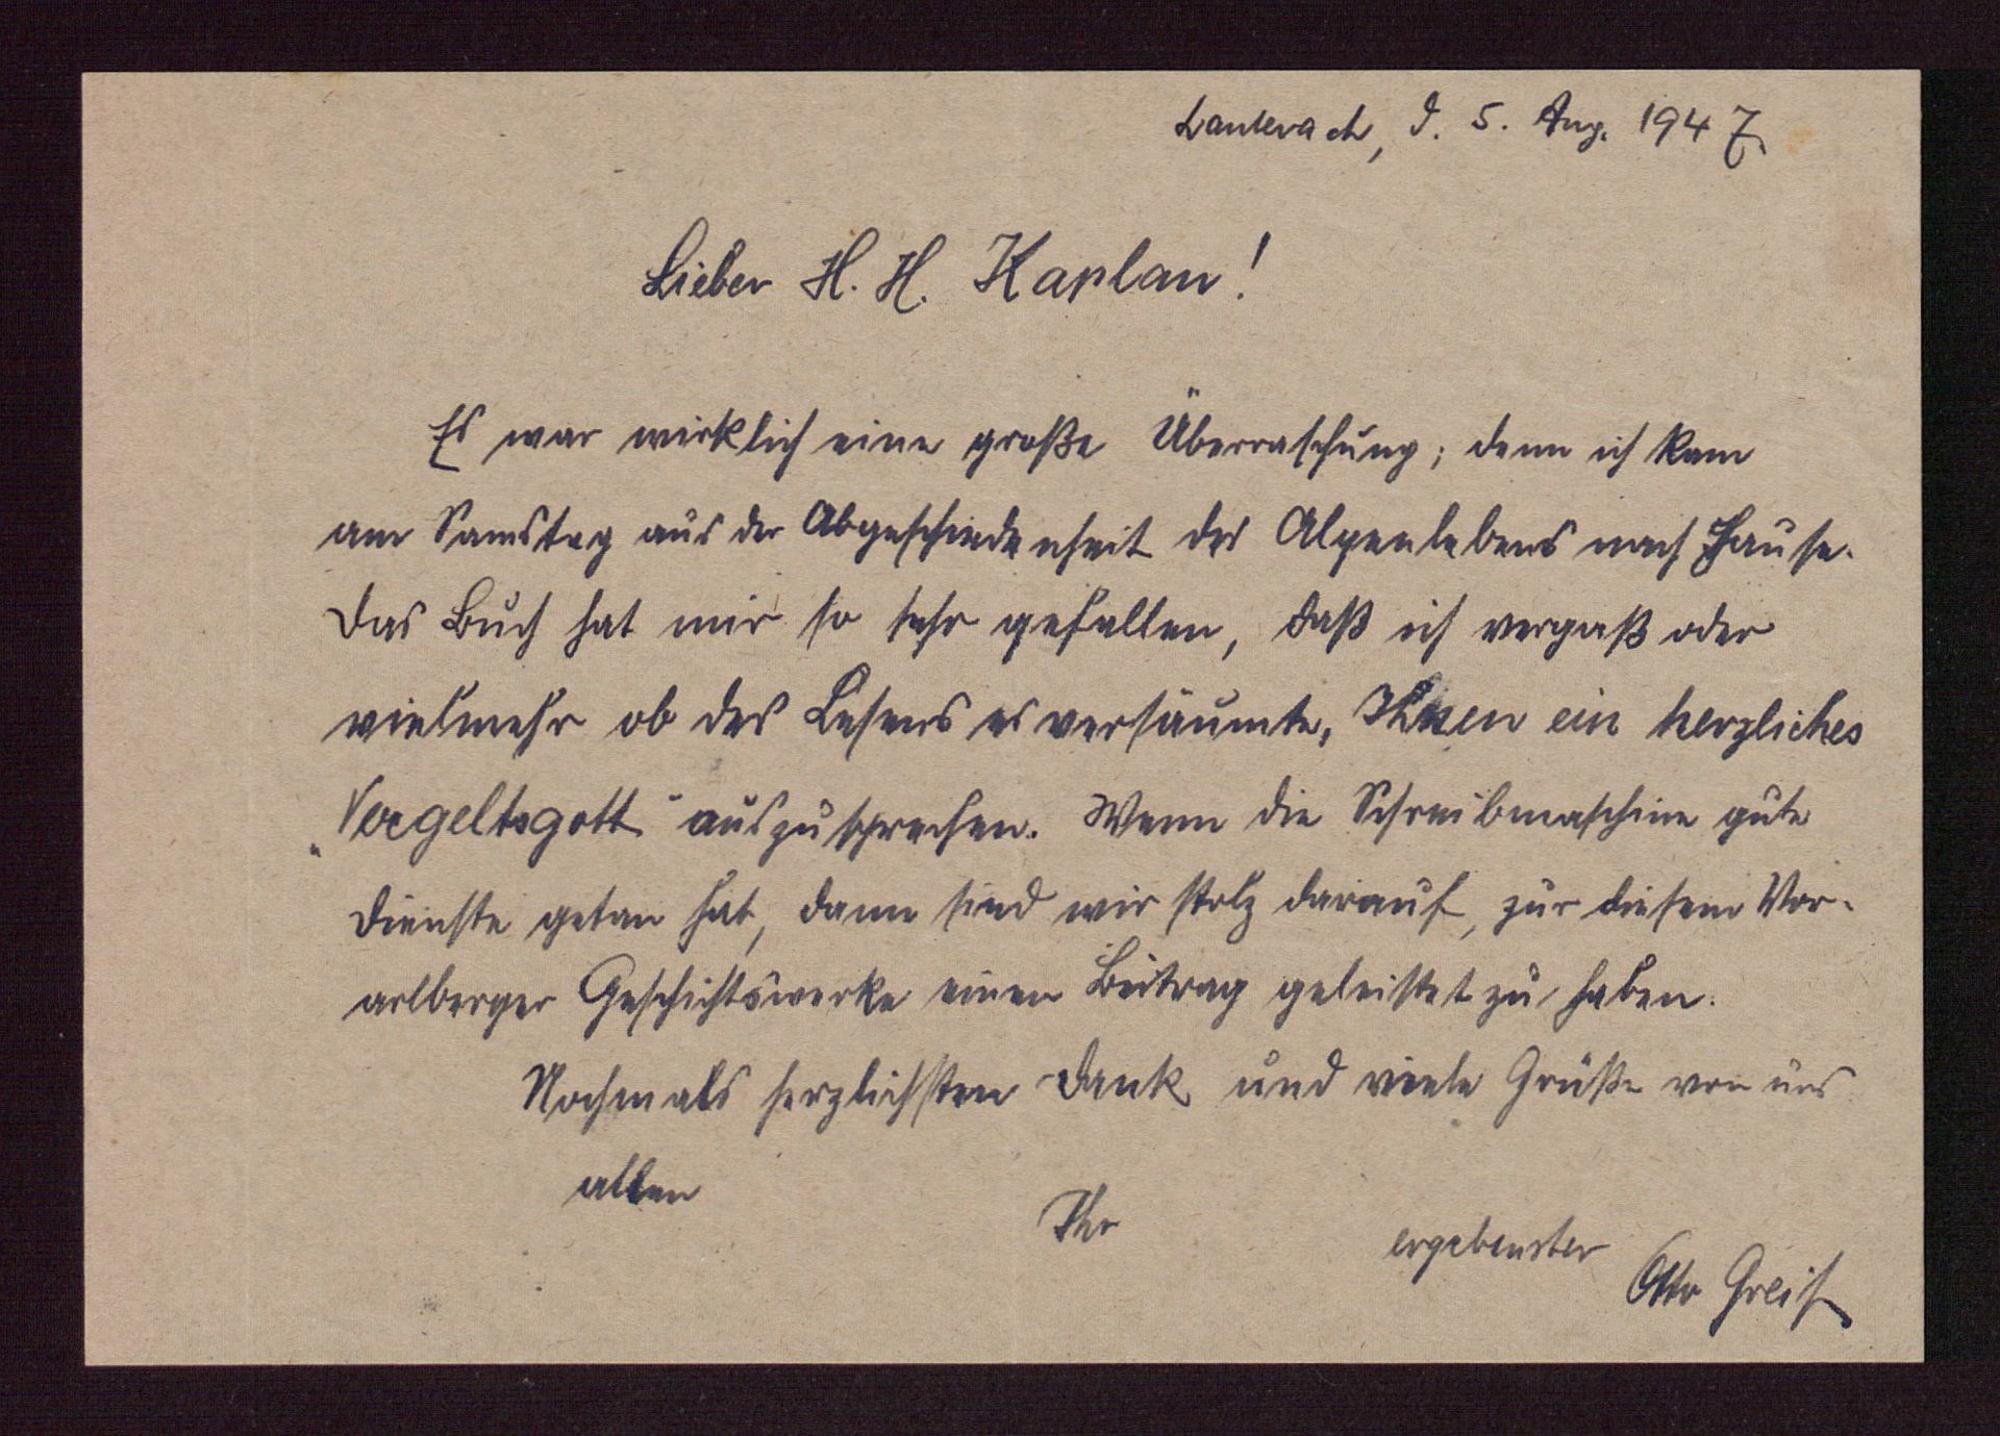 Lauterach, d. 5. Aug. 1947.
Lieber H. H. Kaplan!
Es war wirklich eine große Überraschung; denn ich kam
am Samstag aus der Abgeschiedenheit des Alpenlebens nach Hause.
Das Buch hat mir so sehr gefallen, daß ich vergaß oder
vielmehr ob des Lesens es versäumte, Ihnen ein herzliches
„Vergeltsgott“ auszusprechen. Wenn die Schreibmaschine gute
Dienste getan hat, dann sind wir stolz darauf, zur diesem Vor-
arlberger Geschichtswerke einen Beitrag geleistet zu haben.
Nochmals herzlichsten Dank und viele Grüße von uns
allen
Ihr
ergebenster
Otto Greif